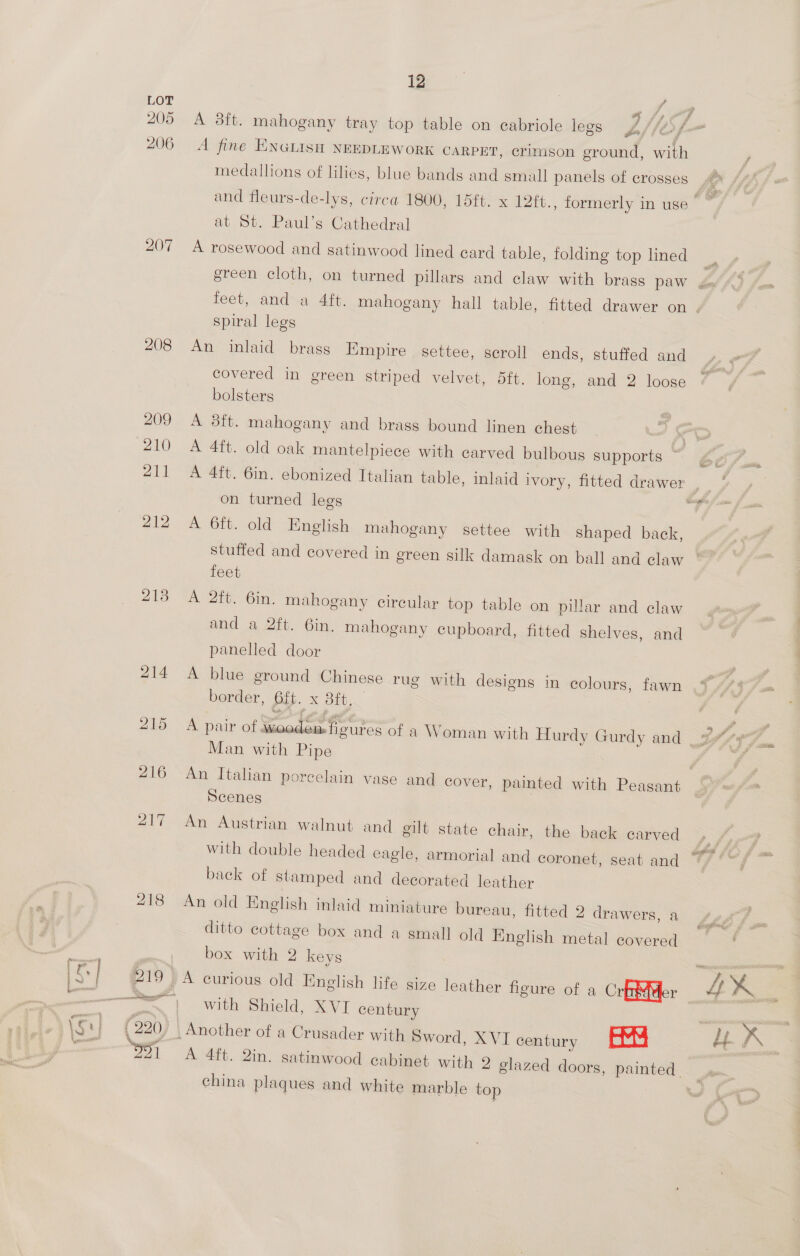 12
LOT
205 A 3ft. mahogany tray top table on cabriole legs
206 A fine ENGLISH NEEDLEWORK CARPET, crimson ground, with
medallions of lilies, blue bands and small panels of crosses
and fleurs-de-lys, circa 1800, 15ft. x 12ft., formerly in use
at St. Paul's Cathedral
207 A rosewood and satinwood lined card table, folding top lined
green cloth, on turned pillars and claw with brass paw
feet, and a 4ft. mahogany hall table, fitted drawer on
spiral legs
208 An inlaid brass Empire settee, scroll ends, stuffed and
covered in green striped velvet, 5ft. long, and 2 loose
bolsters
209 A 3ft. mahogany and brass bound linen chest
210 A 4ft. old oak mantelpiece with carved bulbous supports
211 A 4ft. 6in. ebonized Italian table, inlaid ivory, fitted drawer
on turned legs
212 A 6ft. old English mahogany settee with shaped back,
stuffed and covered in green silk damask on ball and claw
feet
213 A 2ft. 6in. mahogany circular top table on pillar and claw
and a 2ft. 6in. mahogany cupboard, fitted shelves, and
panelled door
214 A blue ground Chinese rug with designs in colours, fawn
border, 6ft. x 3ft.
215 A pair of wooden figures of a Woman with Hurdy Gurdy and
Man with Pipe
216 An Italian porcelain vase and cover, painted with Peasant
Scenes
217 An Austrian walnut and gilt state chair, the back carved
with double headed eagle, armorial and coronet, seat and
back of stamped and decorated leather
218 An old English inlaid miniature bureau, fitted 2 drawers, a
ditto cottage box and a small old English metal covered
box with 2 keys
219 A curious old English life size leather figure of a Crusader
with Shield, XVI century
220 Another of a Crusader with Sword, XVI century
221 A 4ft. 2in. satinwood cabinet with 2 glazed doors, painted
china plaques and white marble top